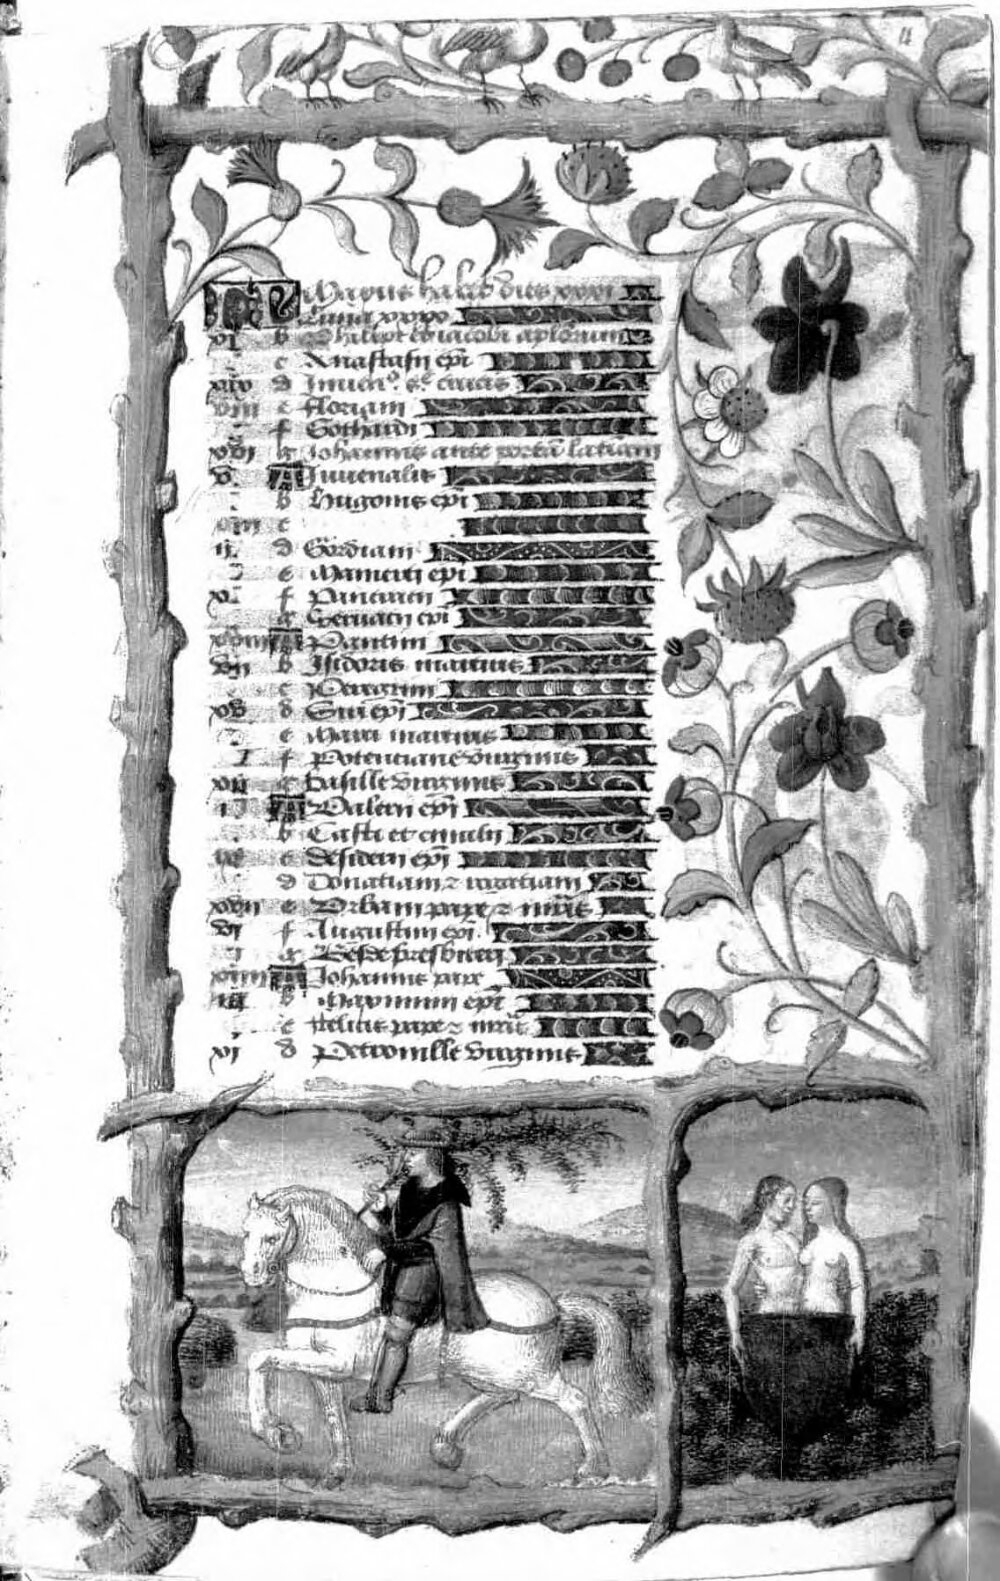 KL Mayus habet dies xxxi
Luna xxx
vi b Philippi et iacobi aplorum
c Anastasii epi
xiiii d Inuencio sce crucis
e floriani
f Gothardi
g Johannis ante portam latinam
v A Juuenalis
b hugonis epi
c
ii d Gordiani
e Mamerti epi
x f Pancracii
g Geruacii epi
A
vii b Isidoris martiris
c Peregrini
d
e Marci martiris
f Potenciane virginis
xii g basille virginis
A Valerii epi
b Casti et emilii
c desiderii epi
d Donatiani z rogatiani
xvii e Vrbani pape z mris
vi f Augustini epi
g Bede presbiteri
xiiii A Johannis pape
iii b Maximini epi
c felicis pape z mris
xi d Petronille virginis